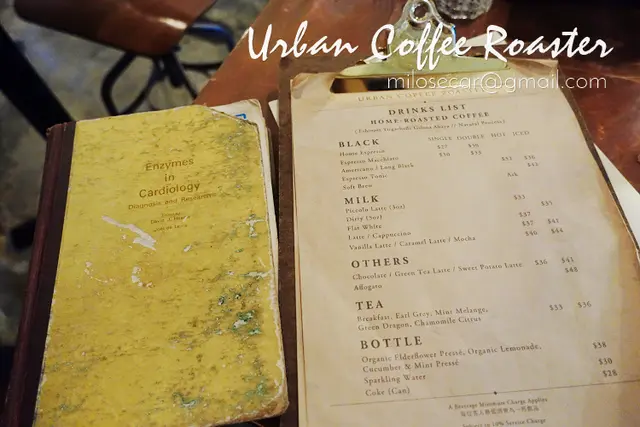 Urban Coffee Roaster
milosecar@gmail.com
Enzymes
in
Cardiology
Diagnosis and Research
URBAN COFFEE ROASTER
DRINKS LIST
HOME-ROASTED COFFEE
BLACK SINGLE DOUBLE HOT ICED
House Espresso $27 $30
Espresso Macchiato $30 $33
Americano / Long Black $33 $36
Espresso Tonic $42
Soft Brew Ask
MILK
Piccolo Latte (3oz) $33
Dirty (5oz) $35
Flat White $37
Latte / Cappuccino $37 $41
Vanilla Latte / Caramel Latte / Mocha $40 $44
OTHERS
Chocolate / Green Tea Latte / Sweet Potato Latte $36 $41
Affogato $48
TEA
Breakfast, Earl Grey, Mint Melange, $33 $36
Green Dragon, Chamomile Citrus
BOTTLE
Organic Elderflower Pressé, Organic Lemonade, $38
Cucumber & Mint Pressé
Sparkling Water $30
Coke (Can) $28
A Beverage Minimum Charge Applies
Subject to 10% Service Charge